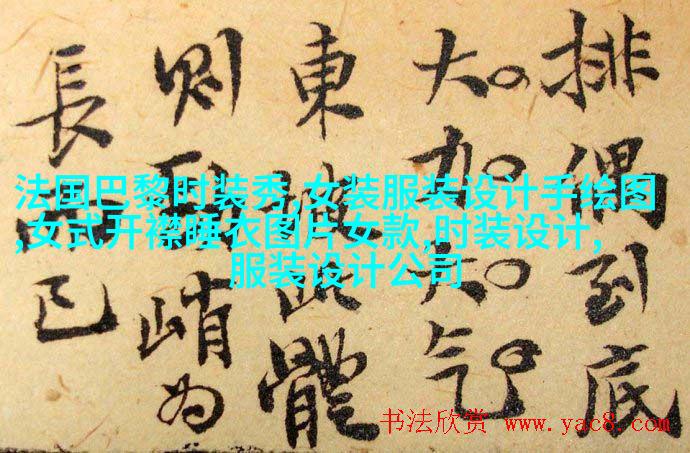 排偶到底
大大气
東坡此體
則峭为
長已
法国巴黎时装秀,女装服装设计手绘图
,女式开襟睡衣图片女款,时装设计,
服装设计公司
书法欣赏 www.yac8.com